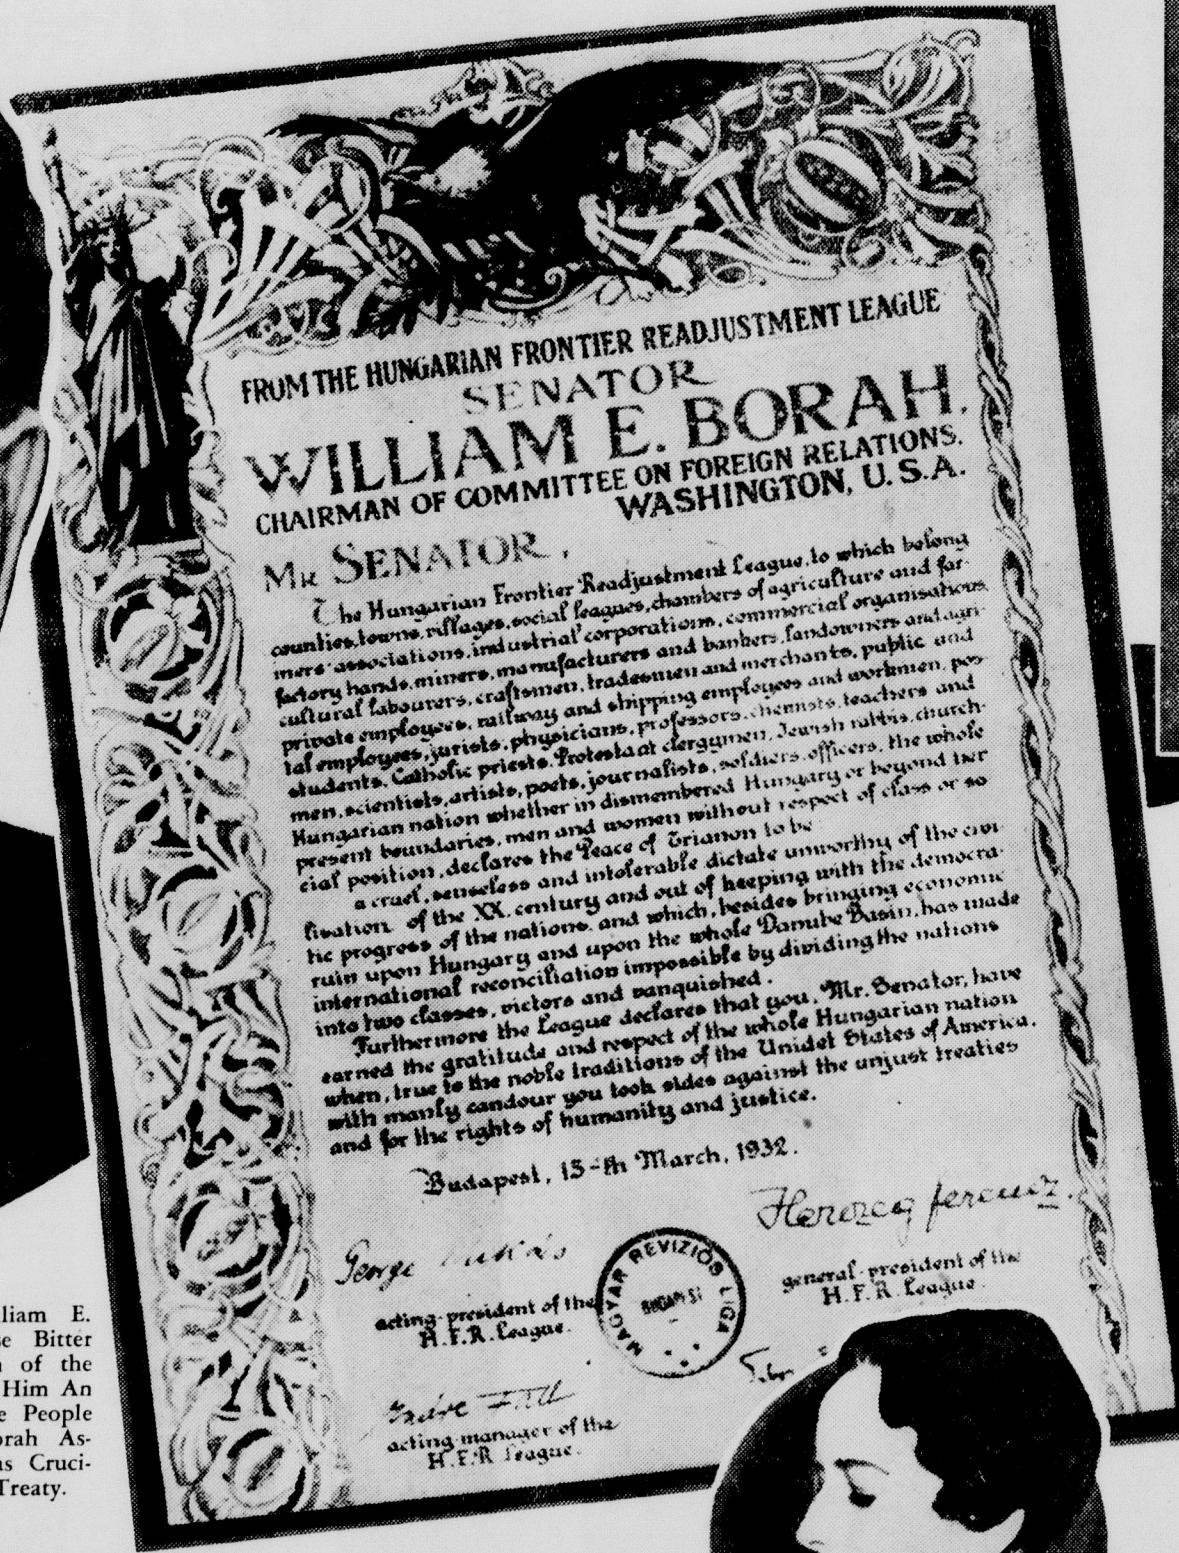 FROM THE HUNGARIAN FRONTIER READJUSTMENT LEAGUE
SENATOR
WILLIAM E. BORAH.
CHAIRMAN OF COMMITTEE ON FOREIGN RELATIONS.
WASHINGTON, U.S.A.
MR SENATOR,
The Hungarian Frontier Readjustment League, to which belong
counties, towns, villages, social leagues, chambers of agriculture and far-
mers' associations, industrial corporations, commercial organisations,
factory hands, miners, manufacturers and bankers, landowners and agri-
cultural labourers, craftsmen, tradesmen and merchants, public and
private employees, railway and shipping employees and workmen, pos-
tal employees, jurists, physicians, professors, chemists, teachers and
students, Catholic priests, Protestant clergymen, Jewish rabbis, church-
men, scientists, artists, poets, journalists, soldiers, officers, the whole
Hungarian nation whether in dismembered Hungary or beyond her
present boundaries, men and women without respect of class or so
cial position, declares the Peace of Trianon to be
a cruel, senseless and intolerable dictate unworthy of the civi-
lisation of the XX. century and out of keeping with the democra-
tic progress of the nations, and which, besides bringing economic
ruin upon Hungary and upon the whole Danube Basin, has made
international reconciliation impossible by dividing the nations
into two classes, victors and vanquished.
Furthermore the League declares that you, Mr. Senator, have
earned the gratitude and respect of the whole Hungarian nation
when, true to the noble traditions of the Unidet States of America,
with manly candour you took sides against the unjust treaties
and for the rights of humanity and justice.
Budapest, 15-th March, 1932.
Herczeg Ferencz.
George
MAGYAR REVIZIÓS LIGA
BUDAPEST
general-president of the
H.F.R. League.
acting-president of the
H.F.R. League.
acting-manager of the
H.F.R. League.
lliam E.
se Bitter
n of the
Him An
e People
orah As-
as Cruci-
Treaty.